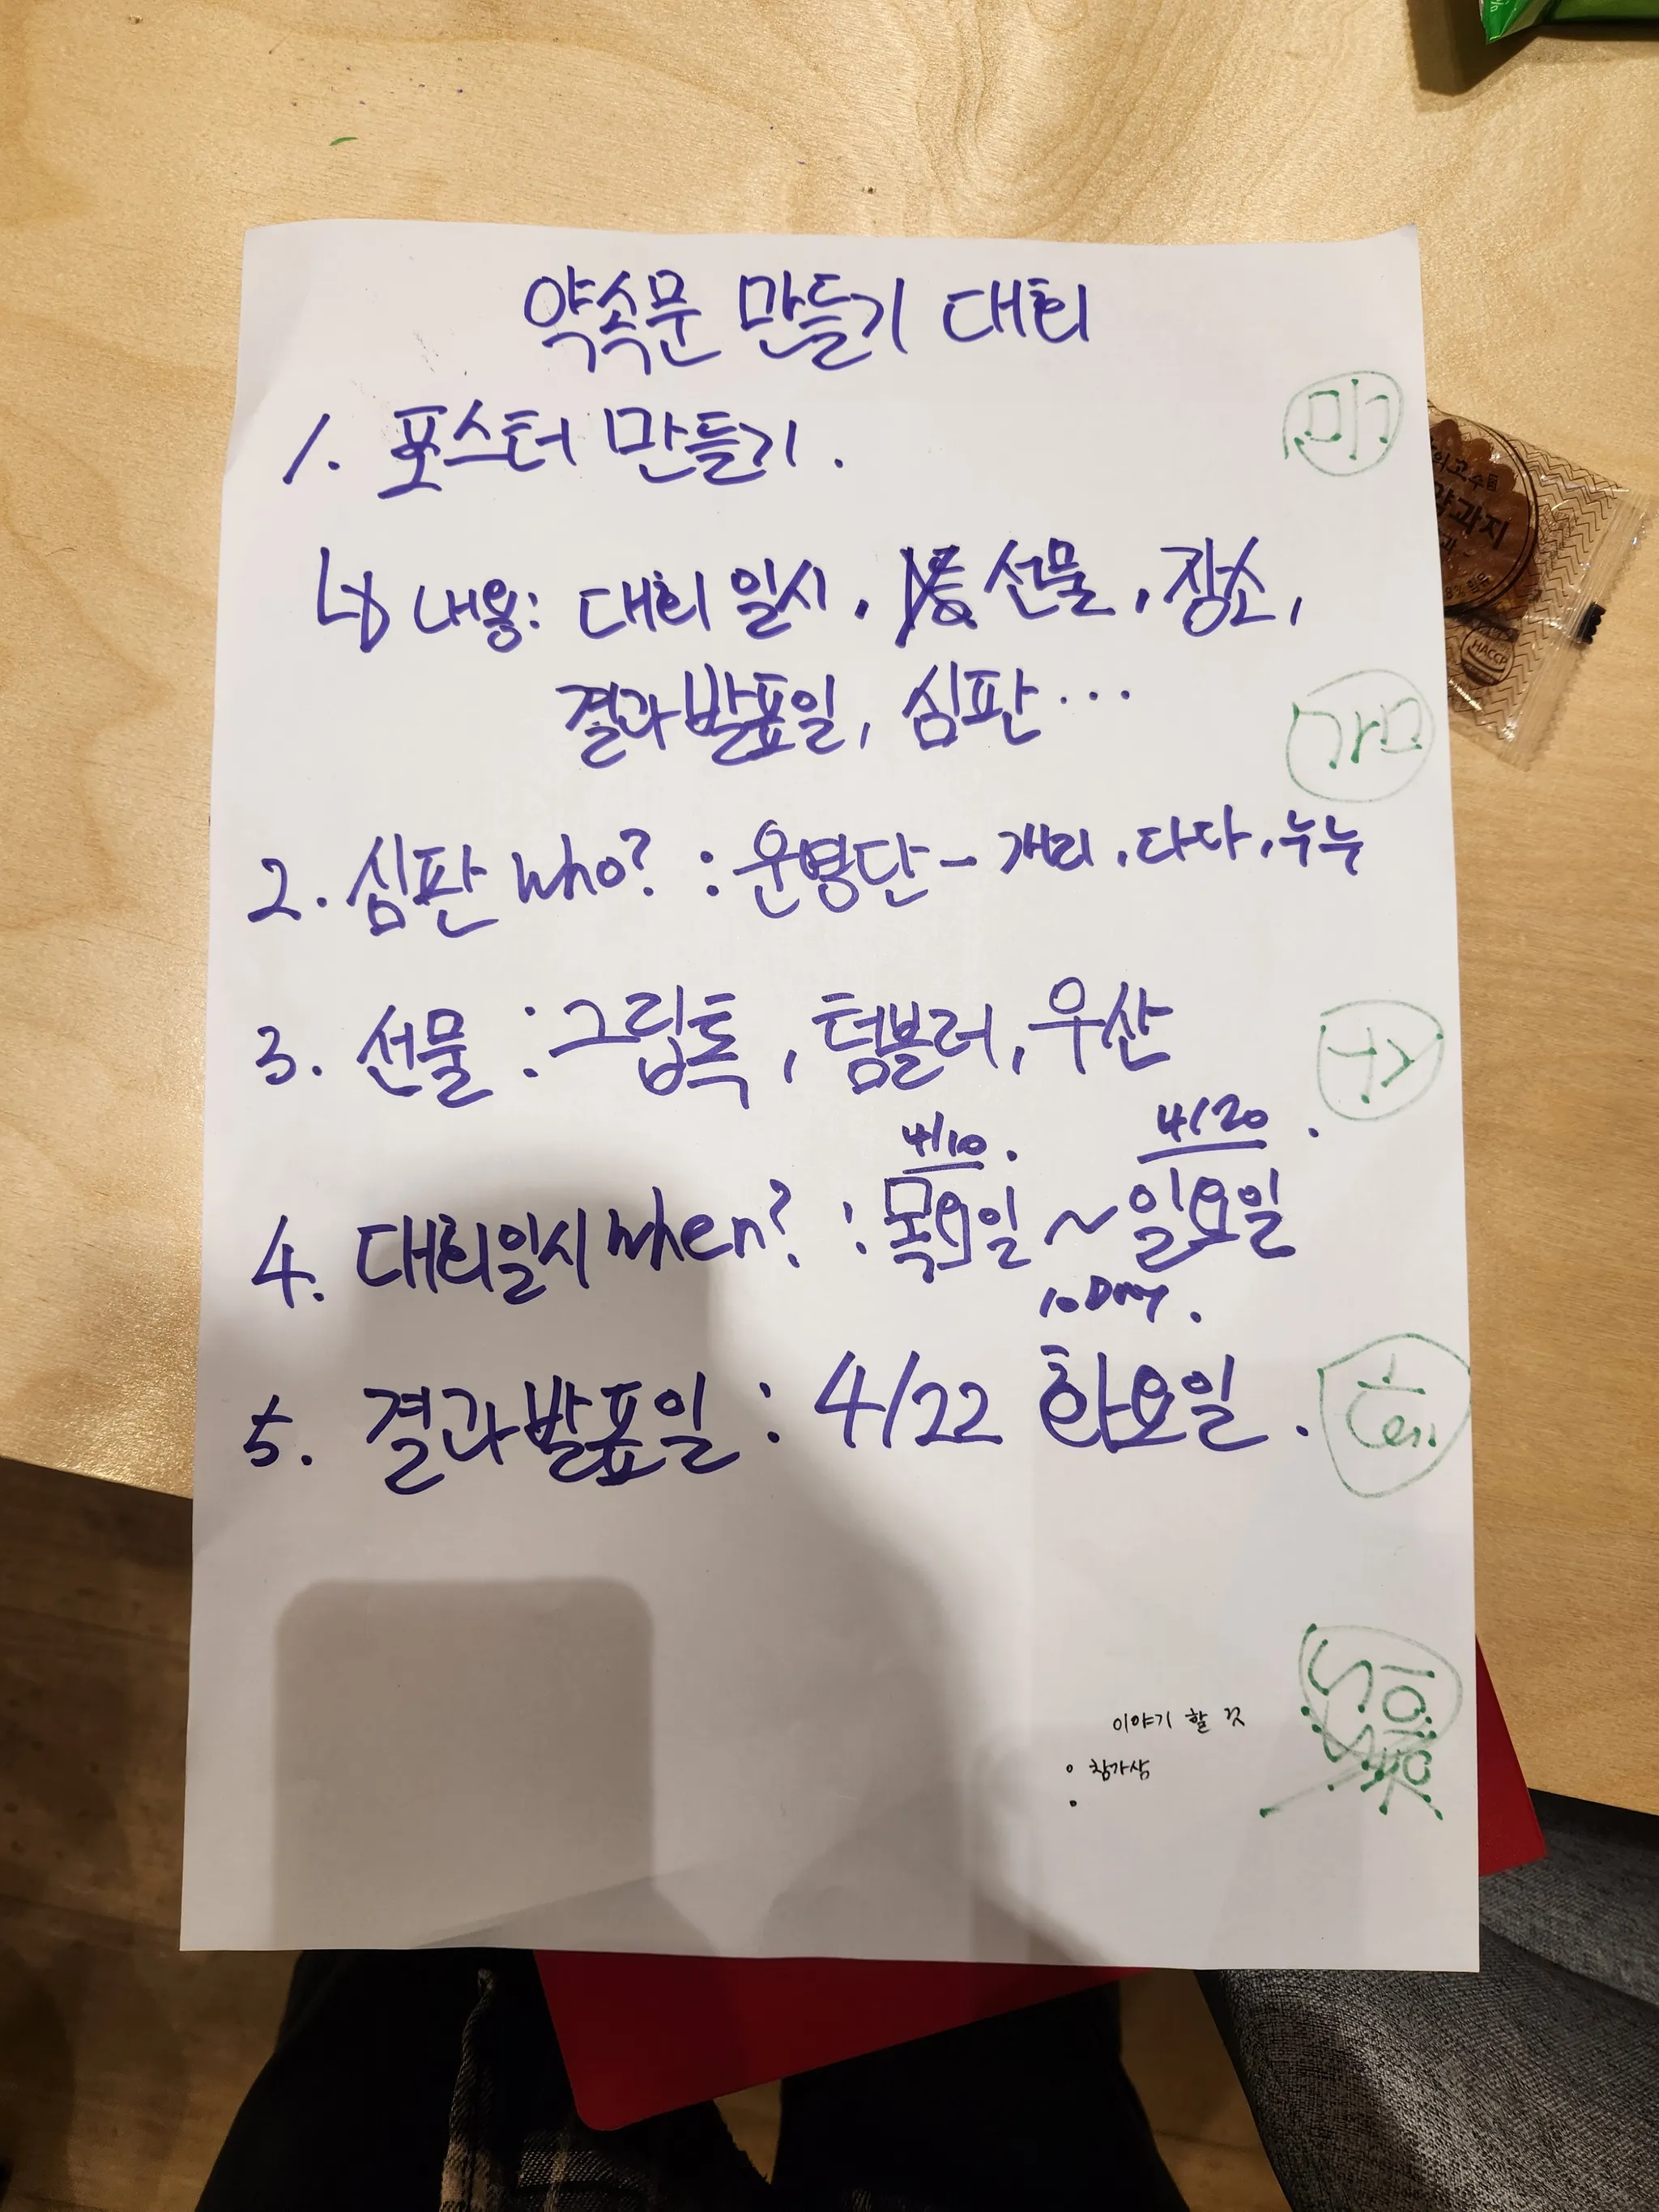 약속문 만들기 대회
1. 포스터 만들기.
↳ 내용: 대회 일시, 선물, 장소,
결과발표일, 심판...
2. 심판 who? : 운영단 - 개리, 다다, 누누
3. 선물 : 그립톡, 텀블러, 우산
4/10. 4/20.
4. 대회일시 when? : 목요일 ~ 일요일
10 Day.
5. 결과발표일 : 4/22 화요일.
이야기 할 것
참가상
약과지
HACCP